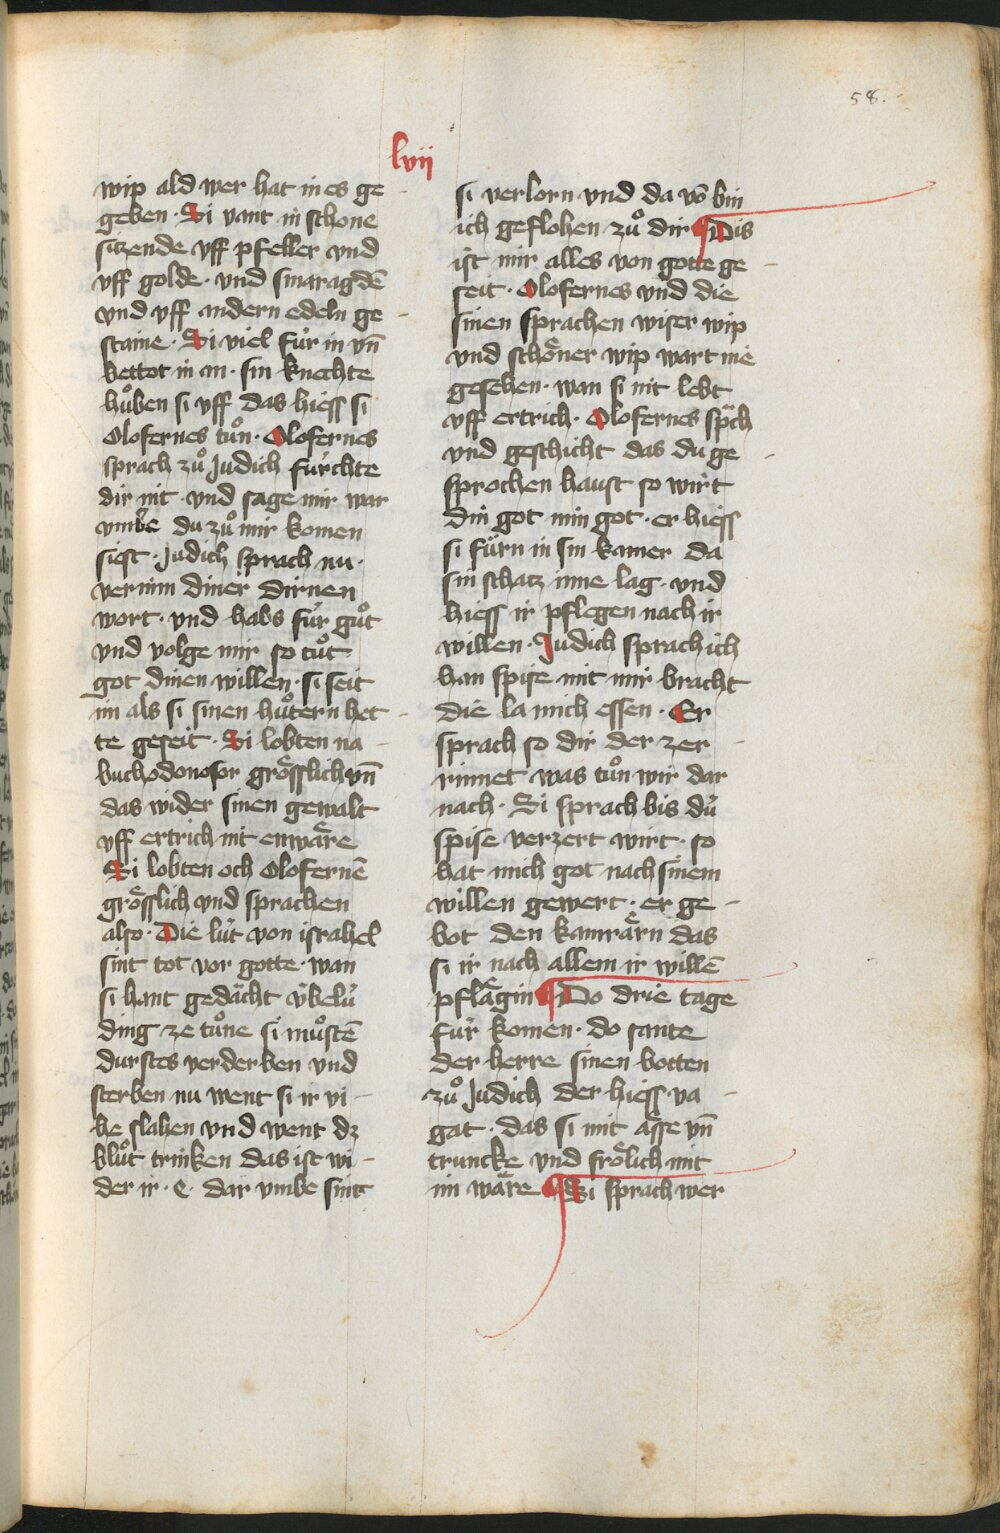 58.
lvii
wip ald wer hat in es ge
geben · Si vant in schone
sitzende vff pfeller vnd
vff golde · vnd smaragdē
vnd vff andern edeln ge
staine · Si viel fúr in vn̄
bettot in an · sin knechte
hůben si vff das hiess si
Olofernes tůn · Olofernes
sprach zů Judich fúrchte
dir nit · vnd sage mir war
vmbe du zů mir komen
siest · Judich sprach nu ·
vernim diner dirnen
wort · vnd habs fúr gůt
vnd volge mir so tůt
got dinen willen · si seit
im als si sinen hůtern het
te geseit · Si lobten na
buchodonosor grôsslich vn̄
das wider sinen gewalt
vff ertrich nit enwåre
Si lobten och Olofernē
grôsslich vnd sprachen
also · Die lút von israhel
sint tot vor gotte · wan
si hant gedächt v́belú
ding ze tůne si můstē
durstes verderben vnd
sterben nu went si ir vi
he slahen vnd went dz
blůt trinken das ist wi
der ir · e · dar vmbe sint
si verlorn vnd da vō bin
ich geflohen zů dir ¶ Dis
ist mir alles von gotte ge
seit · Olofernes vnd die
sinen sprachen wiser wip
vnd schôner wip wart nie
gesehen · wan si nit lebt
vff ertrich · Olofernes spåch
vnd geschicht das du ge
sprochen haust so wirt
din got min got · er hiess
si fúrn in sin kamer da
sin schatz inne lag · vnd
hiess ir pflegen nach ir
willen · Judich sprach ich
han spise mit mir bracht
die la mich essen · Er
sprach so dir der zer
rinnet was tůn wir dar
nach · Si sprach bis dú
spise verzert wirt · so
hat mich got nach sinem
willen gewert · er ge
bot den kamrårn das
si ir nach allem ir willē
pflågin ¶ Do drie tage
fúr komen · do sante
der herre sinen botten
zů Judich der hiess va
gat · das si mit åsse vn̄
truncke vnd frôlich mit
im wåre ¶ Si sprach wer